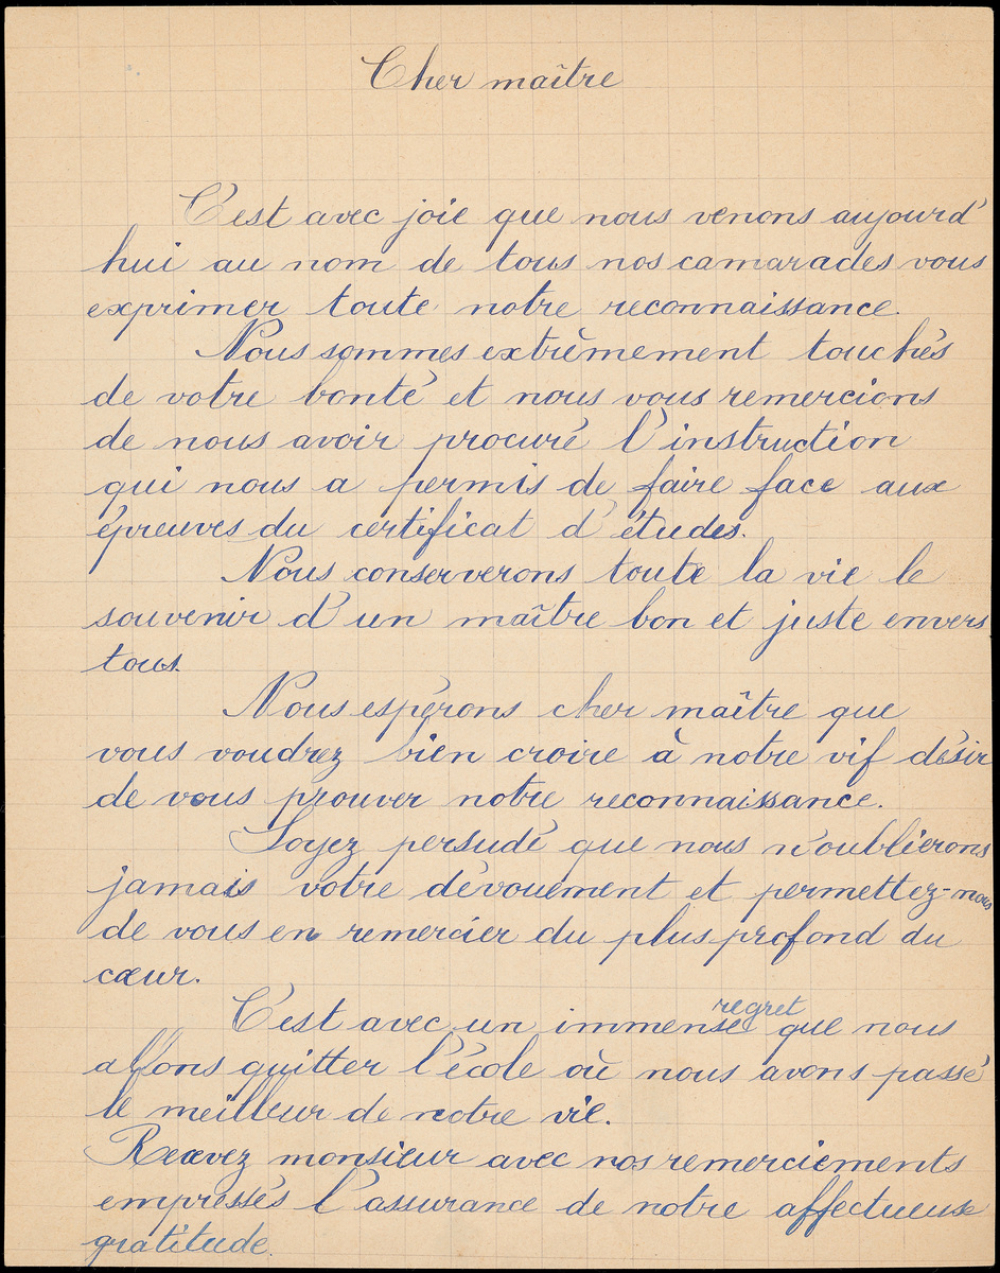 Cher maître
C'est avec joie que nous venons aujourd'
hui au nom de tous nos camarades vous
exprimer toute notre reconnaissance.
Nous sommes extrèmement touchés
de votre bonté et nous vous remercions
de nous avoir procuré l'instruction
qui nous a permis de faire face aux
épreuves du certificat d'études.
Nous conserverons toute la vie le
souvenir d'un maître bon et juste envers
tous.
Nous espérons cher maître que
vous voudrez bien croire à notre vif désir
de vous prouver notre reconnaissance.
Soyez persudé que nous n'oublierons
jamais votre dévouement et permettez-nous
de vous en remercier du plus profond du
cœur.
C'est avec un immense regret que nous
allons quitter l'école où nous avons passé
le meilleur de notre vie.
Recevez monsieur avec nos remerciements
empressés l'assurance de notre affectueuse
gratitude.